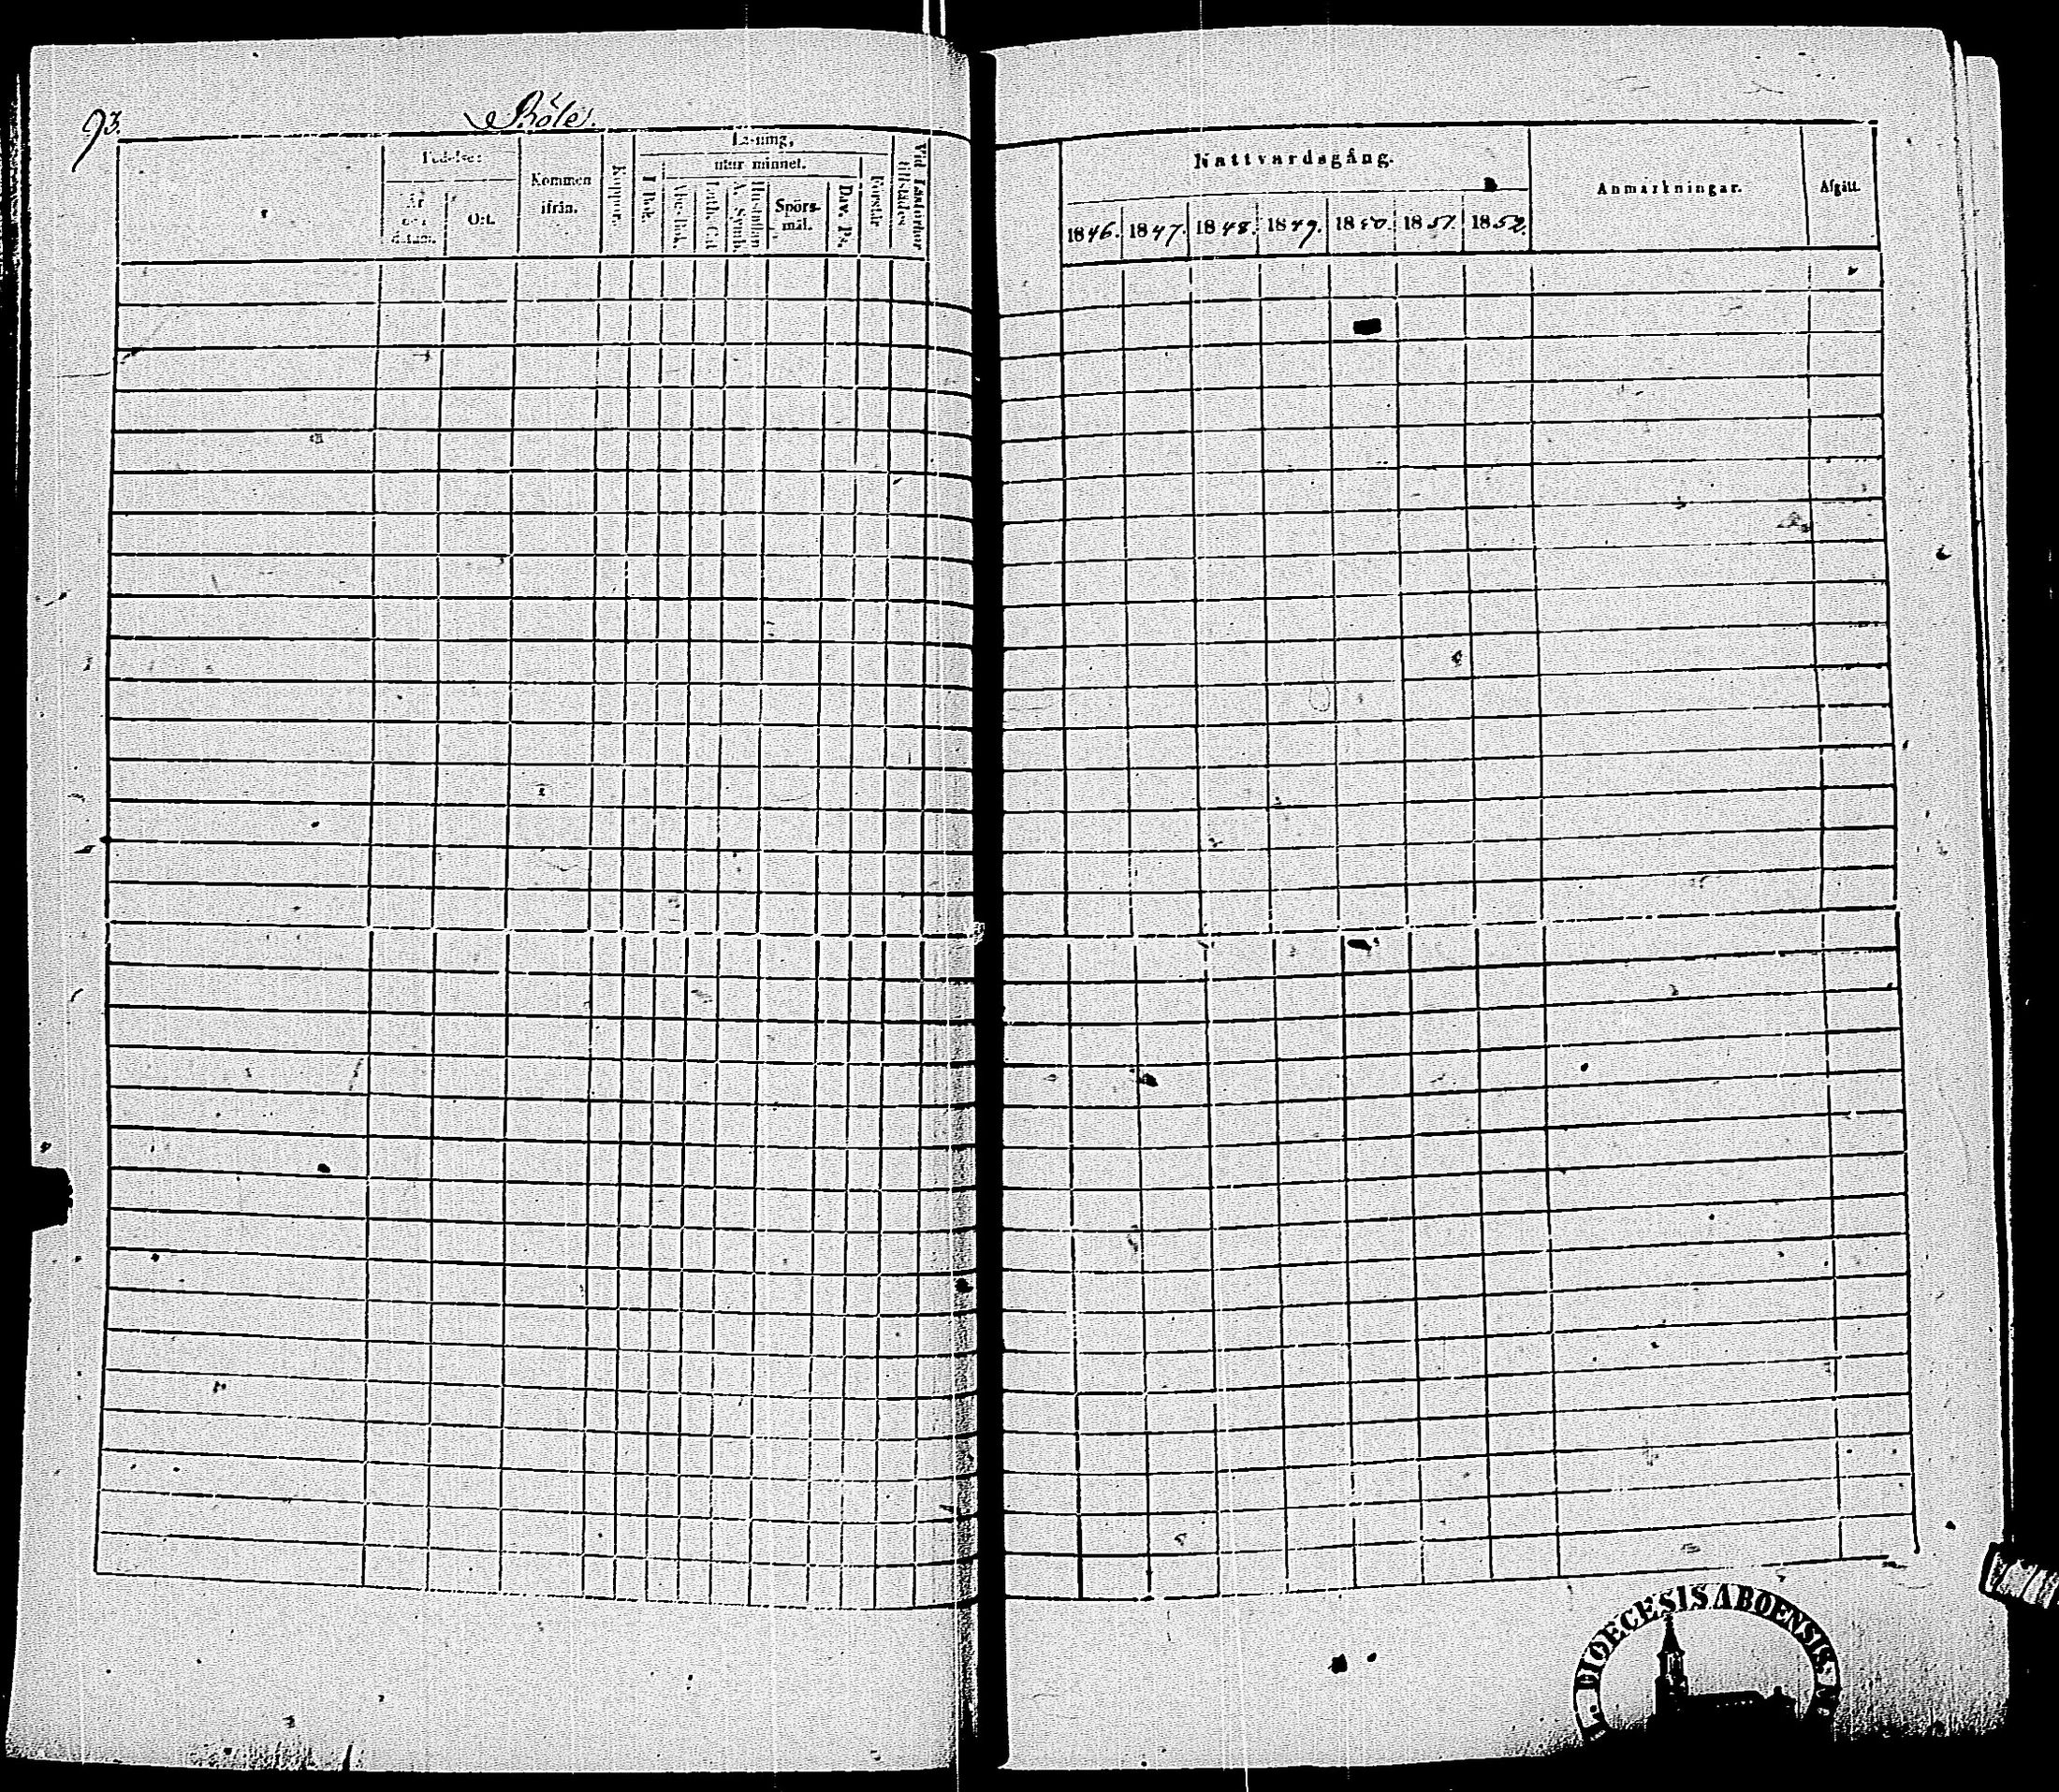 93.
Böle.
Födelse:
År och datum.
Ort.
Kommen ifrån.
Koppor.
Läsning,
I Bok.
utur minnet.
Abc-Bok.
Luth. Cat
Spörs-mål.
Dav. Ps.
Förstår
Nattvardsgång.
1846.
1847.
1848.
1849.
1850.
1851.
1852.
Anmärkningar.
Afgått.
DIOECESIS ABOENSIS.